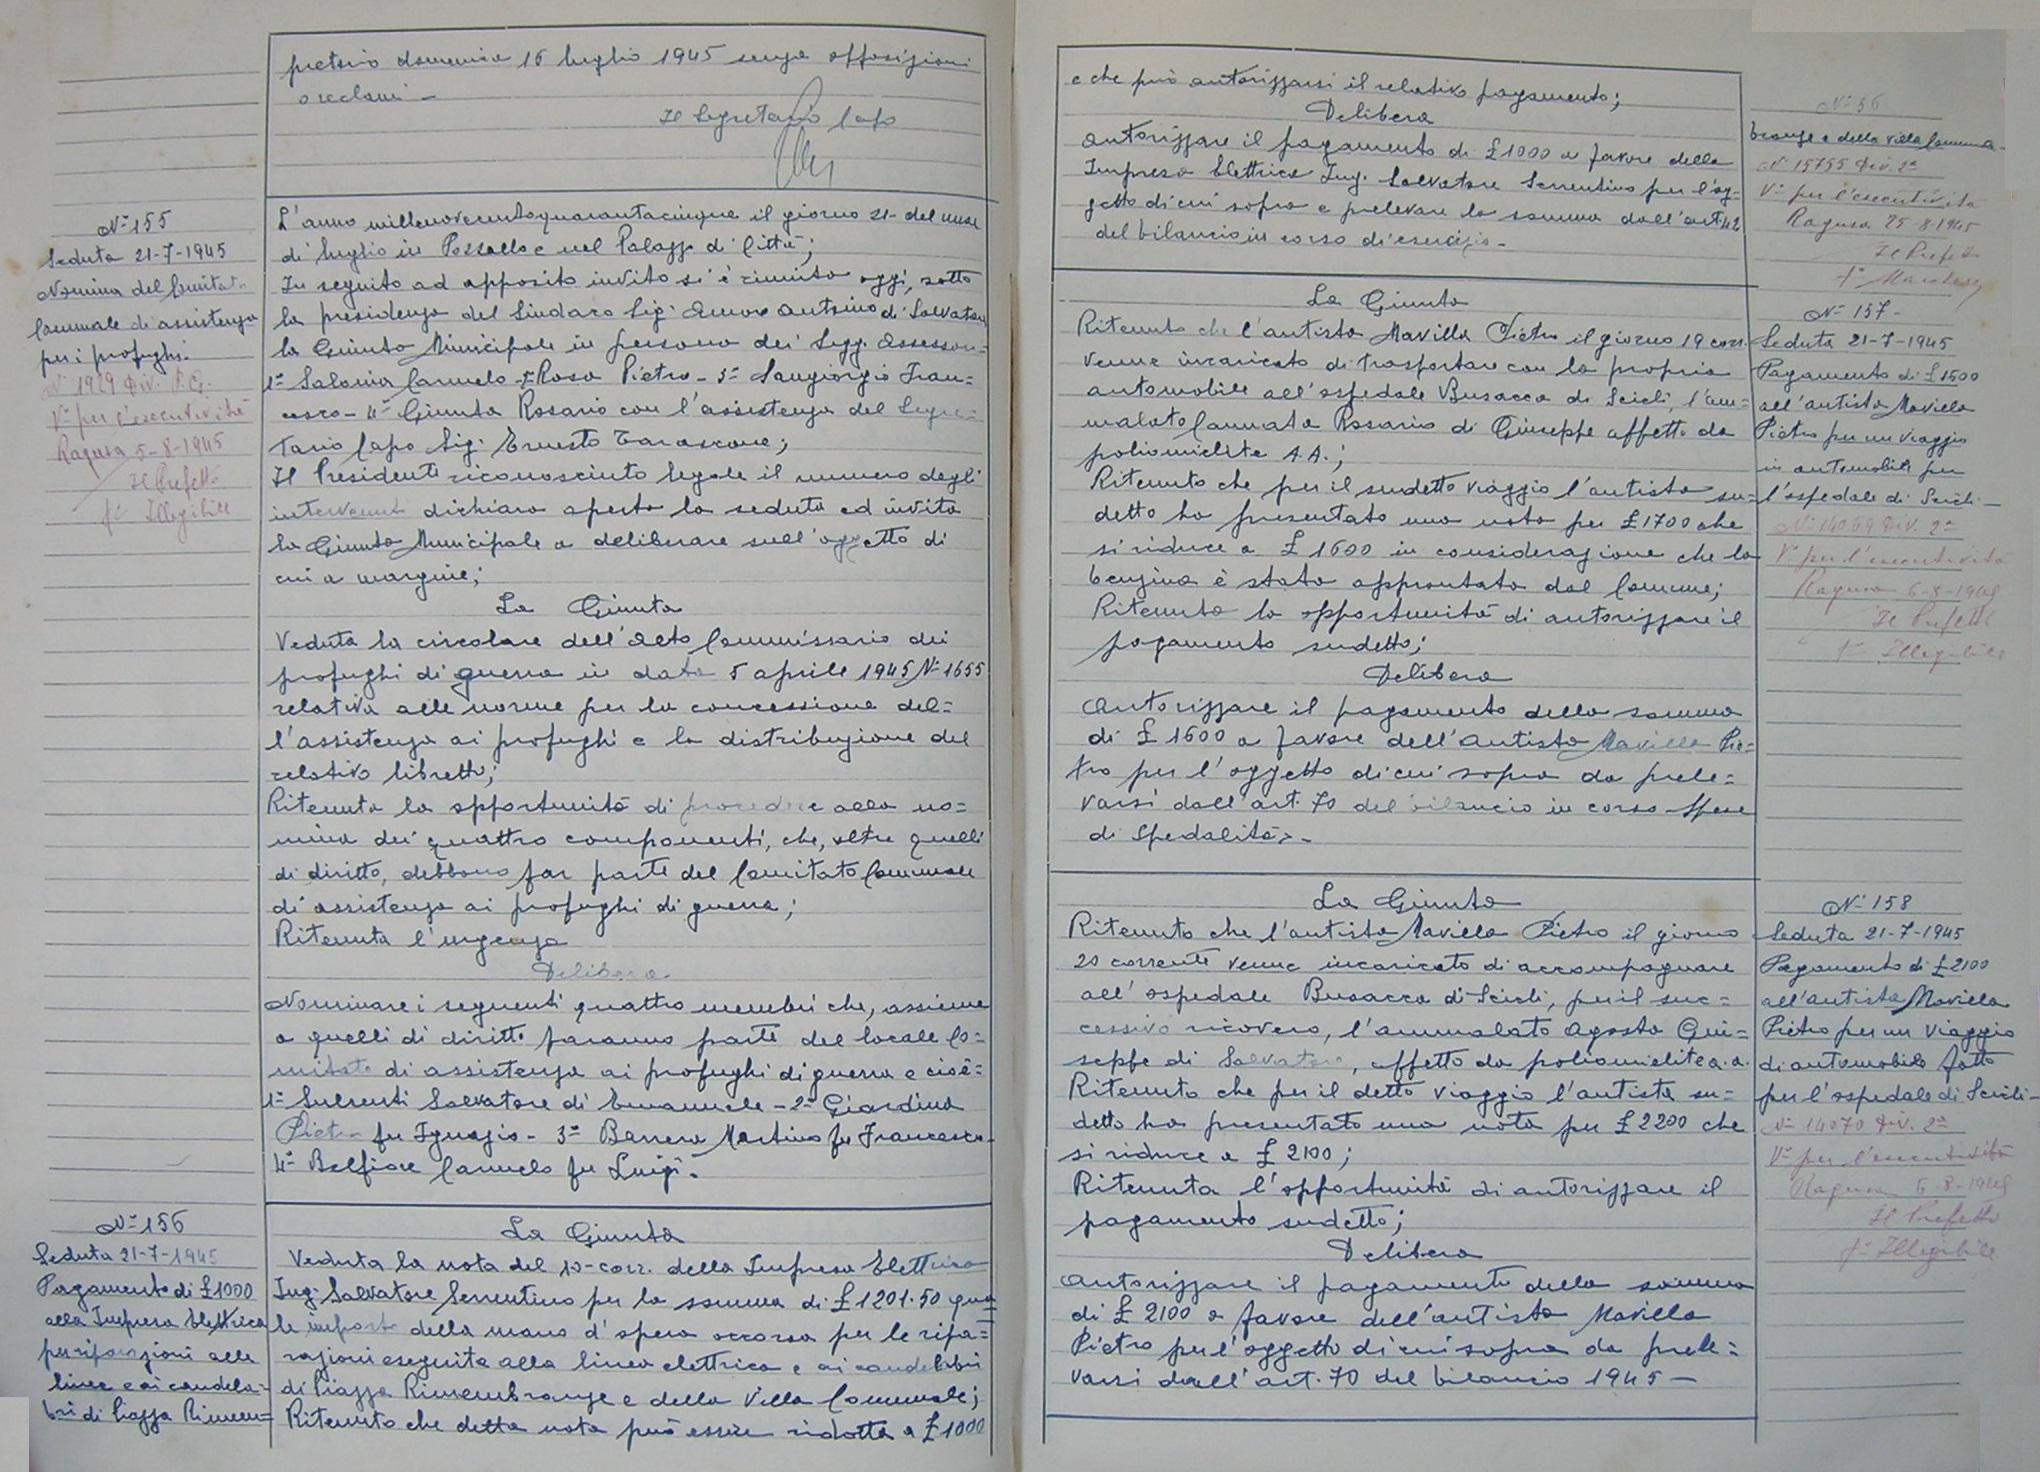 pretorio domenica 16 luglio 1945 senza opposizioni
o reclami -
Il Segretario Capo
N° 155
Seduta 21-7-1945
Nomina del Comitato
Comunale di assistenza
per i profughi.
N° 1929 Div. P.G.
V° per l'esecutività
Ragusa 5-8-1945
Il Prefetto
f° Illegibile
L'anno millenovecentoquarantacinque il giorno 21- del mese
di luglio in Pozzallo e nel Palazzo di Città;
In seguito ad apposito invito si è riunita oggi, sotto
la presidenza del Sindaco Sig. Amore Antonino di Salvatore
la Giunta Municipale in persona dei Sigg. Assessori:
1° Salonia Carmelo - 2° Rosa Pietro - 3° Sangiorgio Fran=
cesco - 4° Giunta Rosario con l'assistenza del Segre=
tario Capo Sig. Ernesto Tarascone;
Il Presidente riconosciuto legale il numero degli
intervenuti dichiara aperta la seduta ed invita
la Giunta Municipale a deliberare sull'oggetto di
cui a margine;
La Giunta
Veduta la circolare dell'Alto Commissario dei
profughi di guerra in data 5 aprile 1945 N° 1655
relativa alle norme per la concessione del=
l'assistenza ai profughi e la distribuzione del
relativo libretto;
Ritenuta la opportunità di procedere alla no=
mina dei quattro componenti, che, oltre quelli
di diritto, debbono far parte del Comitato Comunale
di assistenza ai profughi di guerra;
Ritenuta l'urgenza
Delibera
Nominare i seguenti quattro membri che, assieme
a quelli di diritto faranno parte del locale Co=
mitato di assistenza ai profughi di guerra e cioè=
1° Sulsenti Salvatore di Emanuele - 2° Giardina
Pietro fu Ignazio - 3° Barrera Martino fu Francesco-
4° Belfiore Carmelo fu Luigi.
N° 156
Seduta 21-7-1945
Pagamento di £ 1000
alla Impresa Elettrica
per riparazioni alle
linee e ai candela=
bri di Piazza Rimem=
La Giunta
Veduta la nota del 10- corr. della Impresa Elettrica
Ing. Salvatore Serrentino per la somma di £ 1201.50 qua=
le importo della mano d'opera occorsa per le ripa=
razioni eseguita alla linea elettrica e ai candelabri
di Piazza Rimembranze e della Villa Comunale;
Ritenuto che detta nota può essere ridotta a £ 1000
e che può autorizzarsi il relativo pagamento;
Delibera
Autorizzare il pagamento di £ 1000 a favore della
Impresa Elettrica Ing. Salvatore Serrentino per l'og-
getto di cui sopra e prelevare la somma dall'art. 42
del bilancio in corso di esercizio -
N° 56
branze e della Villa Comuna-
N° 15755 Div. 2ª
V° per l'esecutività
Ragusa 25-8-1945
Il Prefetto
La Giunta
Ritenuto che l'autista Mavilla Pietro il giorno 19 corr.
venne incaricato di trasportare con la propria
automobile all'ospedale Busacca di Scicli, l'am=
malato Cannata Rosario di Giuseppe affetto da
poliomielite A.A.;
Ritenuto che per il sudetto viaggio l'autista su=
detto ha presentato una nota per £ 1700 che
si riduce a £ 1600 in considerazione che la
benzina è stata approntata dal Comune;
Ritenuta la opportunità di autorizzare il
pagamento sudetto;
Delibera
Autorizzare il pagamento della somma
di £ 1600 a favore dell'autista Mavilla Pie=
tro per l'oggetto di cui sopra da prele=
varsi dall'art. 70 del bilancio in corso Spese
di Spedalità -
N° 157-
Seduta 21-7-1945
Pagamento di £ 1600
all'autista Mavilla
Pietro per un viaggio
in automobile per
l'ospedale di Scicli -
N° 14069 Div. 2ª
V° per l'esecutività
Ragusa 6-8-1945
Il Prefetto
f° Illegibile
La Giunta
Ritenuto che l'autista Mavilla Pietro il giorno
20 corrente venne incaricato di accompagnare
all'ospedale Busacca di Scicli, per il suc=
cessivo ricovero, l'ammalato Agosta Giu=
seppe di Salvatore, affetto da poliomielite a.a.
Ritenuto che per il detto viaggio l'autista su=
detto ha presentato una nota per £ 2200 che
si riduce a £ 2100;
Ritenuta l'opportunità di autorizzare il
pagamento sudetto;
Delibera
Autorizzare il pagamento della somma
di £ 2100 a favore dell'autista Mavilla
Pietro per l'oggetto di cui sopra da prele=
varsi dall'art. 70 del bilancio 1945 -
N° 158
Seduta 21-7-1945
Pagamento di £ 2100
all'autista Mavilla
Pietro per un viaggio
di automobile fatto
per l'ospedale di Scicli -
N° 14070 Div. 2ª
V° per l'esecutività
Ragusa 6-8-1945
Il Prefetto
f° Illegibile